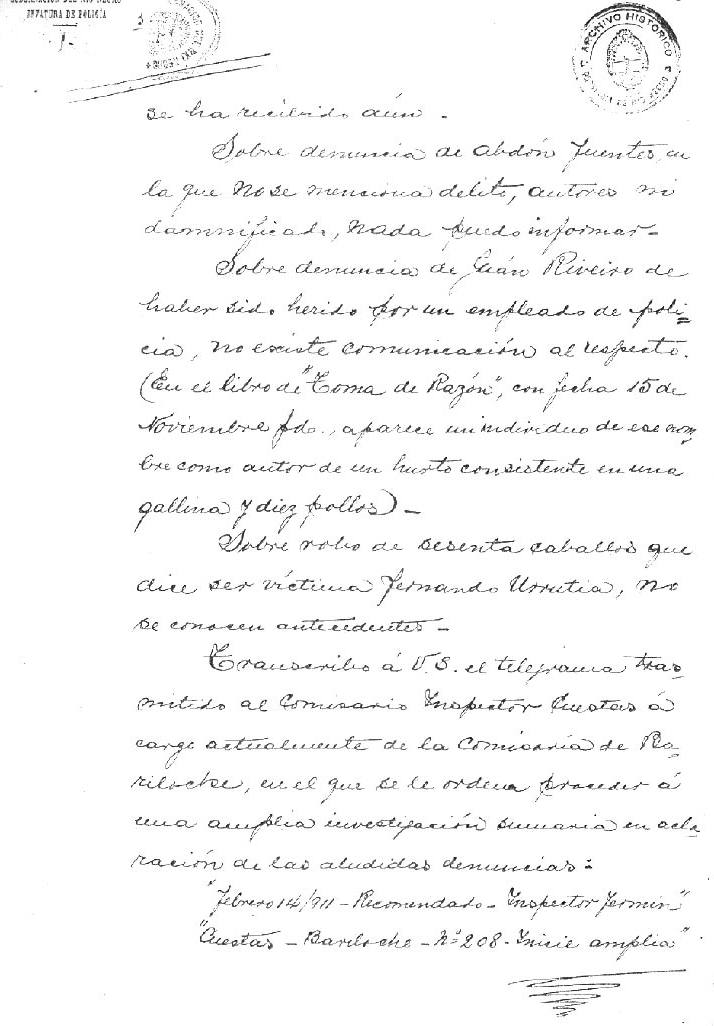 GOBERNACIÓN DEL RÍO NEGRO
JEFATURA DE POLICÍA
ARCHIVO HISTORICO
se ha recibido aún.
Sobre denuncia de Abdón Fuentes, en
la que no se menciona delito, autores ni
damnificado, nada puedo informar-
Sobre denuncia de Juán Riveiro de
haber sido herido por un empleado de poli=
cia, no existe comunicación al respecto.
(En el libro de "Toma de Razón", con fecha 15 de
Noviembre pdo., aparece un individuo de ese nom
bre como autor de un hurto consistente en una
gallina y diez pollos)-
Sobre robo de sesenta caballos que
dice ser víctima Fernando Urrutia, no
se conocen antecedentes-
Transcribo á V.S. el telegrama tras
mitido al Comisario Inspector Cuestas á
cargo actualmente de la Comisaría de Ba-
riloche, en el que se le ordena proceder á
una amplia investigación sumaria en acla
ración de las aludidas denuncias:
"Febrero 14/911-Recomendado-Inspector Fermin"
"Cuestas-Bariloche-Nº 208-Inicie amplia"